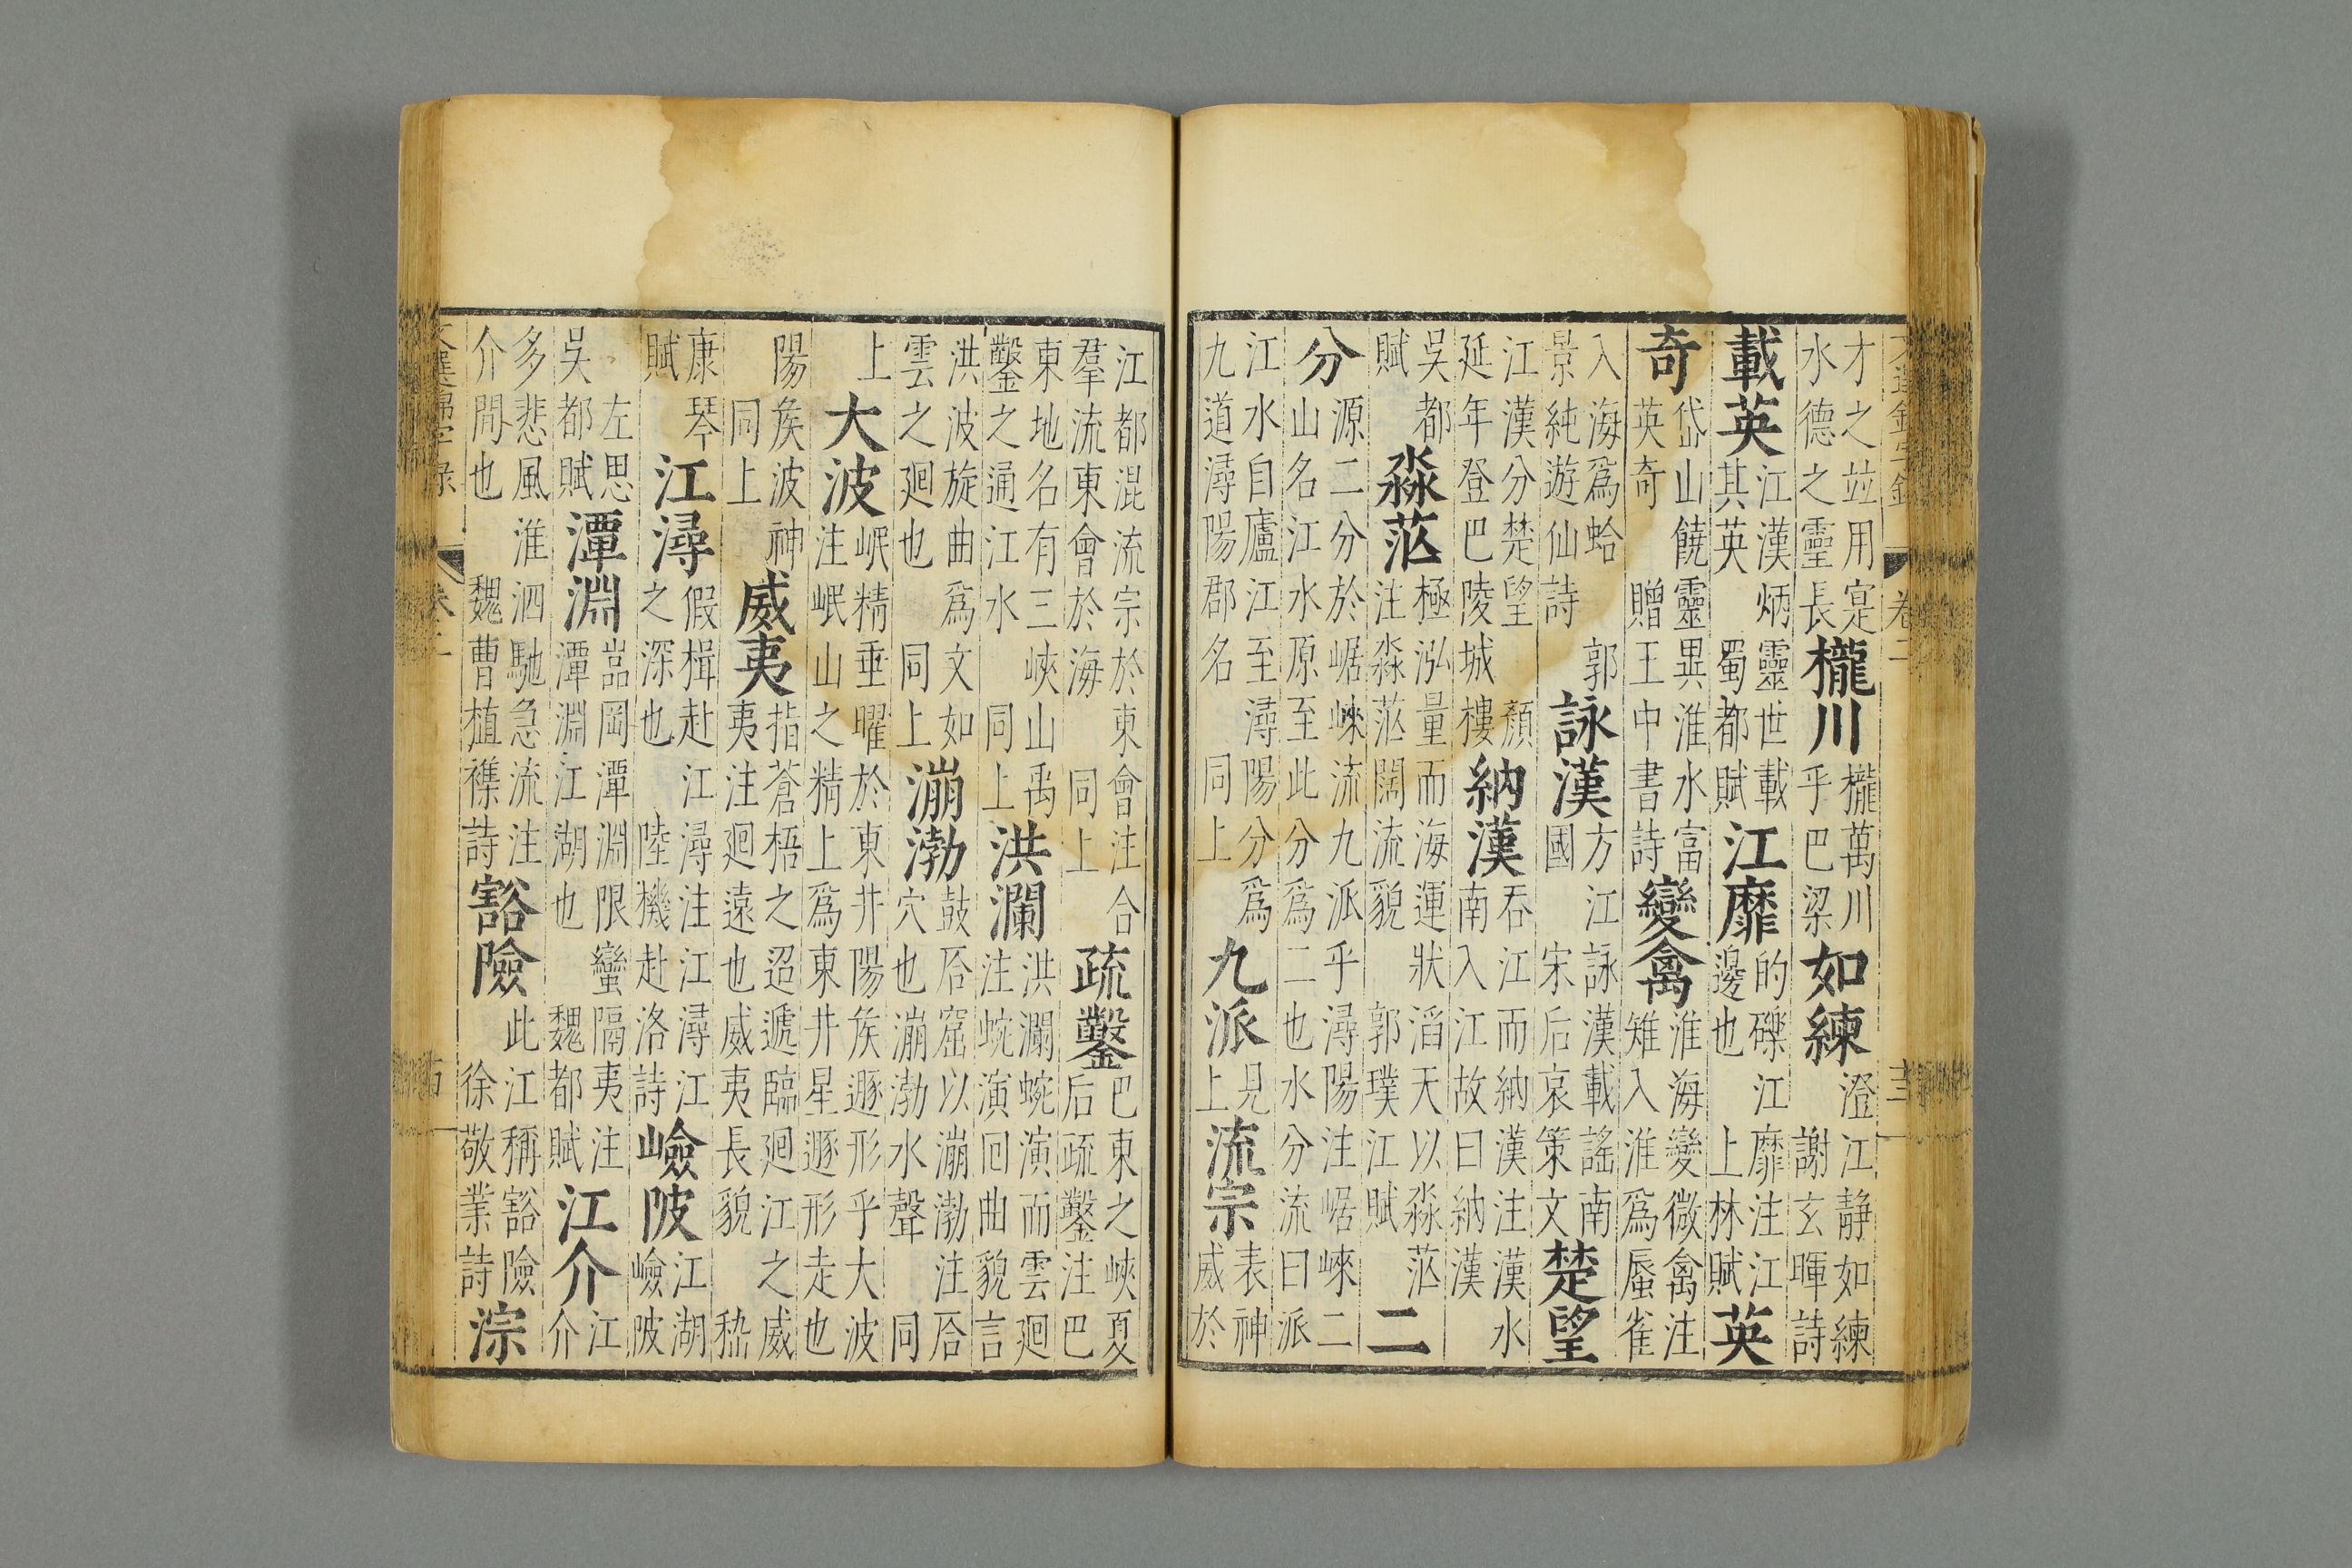 才之竝用寔水德之靈長櫳川櫳萬川乎巴梁如練澄江静如練謝玄暉詩
載英江漢炳靈世載其英蜀都賦江靡的礫江靡注江邊也上林賦英
奇岱山饒靈異淮水富英奇贈王中書詩變禽淮海變微禽注雉入淮爲蜃雀
入海爲蛤郭景純遊仙詩詠漢方江詠漢載謠南國宋后哀策文楚望
江漢分楚望顏延年登巴陵城樓納漢吞江而納漢注漢水南入江故曰納漢
吳都賦淼茫極泓量而海運狀滔天以淼茫注淼茫闊流貌郭璞江賦二
分源二分於崌崍流九派乎潯陽注崌崍二山名江水原至此分爲二也水分流曰派
江水自廬江至潯陽分爲九道潯陽郡名同上九派見上流宗表神威於
卷二
江都混流宗於東會注合羣流東會於海同上疏鑿巴東之峽夏后疏鑿注巴
東地名有三峽山禹鑿之通江水同上洪瀾洪瀾蜿演而雲廻注蜿演回曲貌言
洪波旋曲爲文如雲之廻也同上漰渤鼓㕎窟以漰渤注㕎穴也漰渤水聲同
上大波岷精垂曜於東井陽矦遯形乎大波注岷山之精上爲東井星遯形走也
陽矦波神同上威夷指蒼梧之迢遞臨廻江之威夷注廻遠也威夷長貌嵇
康琴賦江潯假楫赴江潯注江潯江之深也陸機赴洛詩嶮陂江湖嶮陂
左思吳都賦潭淵嵓岡潭淵限蠻隔夷注潭淵江湖也魏都賦江介江介
多悲風淮泗馳急流注介間也魏曹植襍詩豁險此江稱豁險徐敬業詩淙